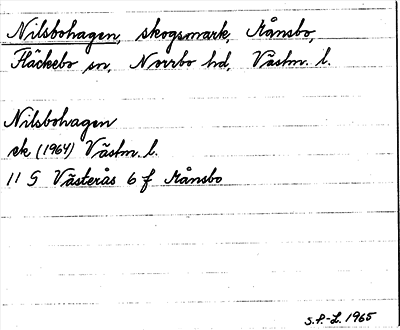 Nilsbohagen, skogsmark, Månsbo,
Fläckebo sn, Norrbo hd, Västm. l.
Nilsbohagen
ek (1964) Västm. l.
11 G Västerås 6 f Månsbo
S.P-L. 1965